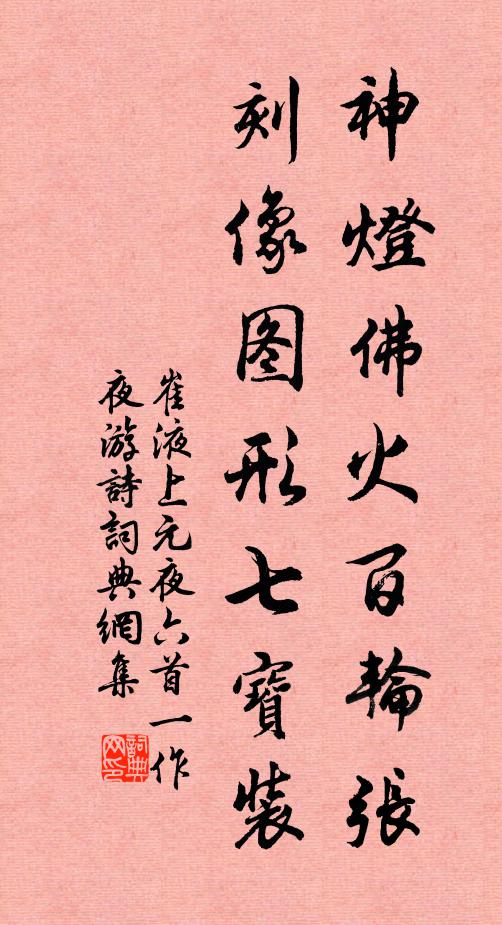 神燈佛火百輪張
刻像图形七寶裝
崔液上元夜六首一作
夜游詩詞典網集
詞典
网印